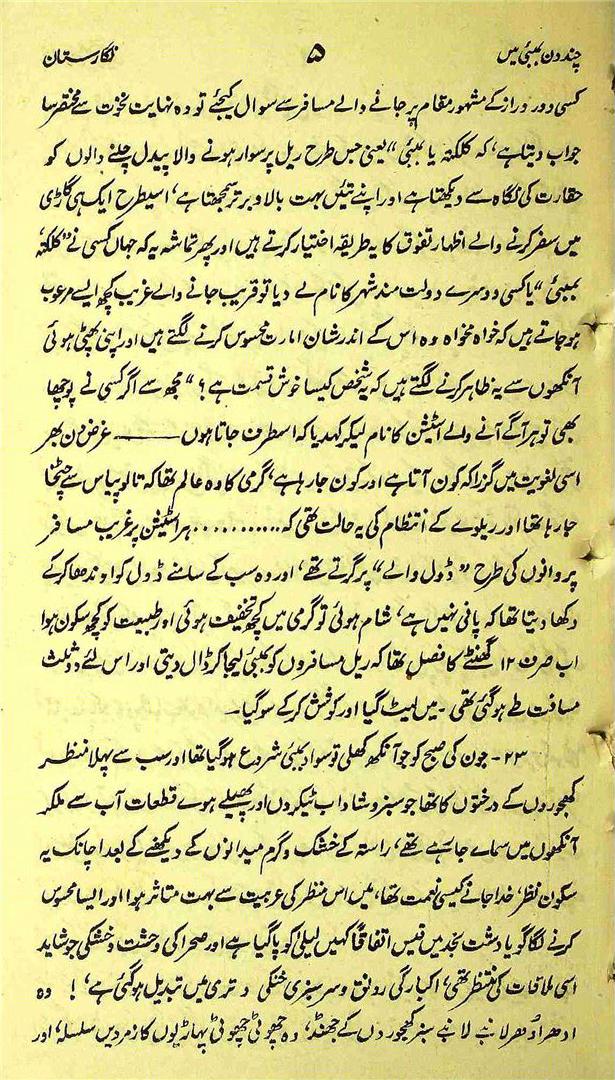 چند دن بمبئی میں ۵ نگارستان
کسی دور دراز کے مشہور مقام پر جانے والے مسافر سے سوال کیجئے تو وہ نہایت نخوت سے مختصر سا
جواب دیتا ہے، کہ کلکتہ یا بمبئی“ یعنی جس طرح ریل پر سوار ہونے والا پیدل چلنے والوں کو
حقارت کی نگاہ سے دیکھتا ہے اور اپنے تئیں بہت بالا و برتر سمجھتا ہے، اسیطرح ایک ہی گاڑی
میں سفر کرنے والے اظہار تفوق کا یہ طریقہ اختیار کرتے ہیں اور پھر تماشہ یہ کہ جہاں کسی نے ”کلکتہ،
بمبئی“ یا کسی دوسرے دولت مند شہر کا نام لے دیا تو قریب جانے والے غریب کچھ ایسے مرعوب
ہو جاتے ہیں کہ خواہ مخواہ وہ اس کے اندر شان امارت محسوس کرنے لگتے ہیں اور اپنی پھٹی ہوئی
آنکھوں سے یہ ظاہر کرنے لگتے ہیں کہ یہ شخص کیسا خوش قسمت ہے؟“ مجھ سے اگر کسی نے پوچھا
بھی تو ہر آگے آنے والے اسٹیشن کا نام لیکر کہدیا کہ اسطرف جاتا ہوں ——— غرض دن بھر
اسی لغویت میں گزرا کہ کون آتا ہے اور کون جا رہا ہے، گرمی کا وہ عالم تھا کہ تالو پیاس سے چٹخا
جا رہا تھا اور ریلوے کے انتظام کی یہ حالت تھی کہ .......... ہر اسٹیشن پر غریب مسافر
پروانوں کی طرح ”ڈول والے“ پر گرتے تھے، اور وہ سب کے سامنے ڈول کو اوندھا کر کے
دکھا دیتا تھا کہ پانی نہیں ہے، شام ہوئی تو گرمی میں کچھ تخفیف ہوئی اور طبیعت کو کچھ سکون ہوا
اب صرف ۱۲ گھنٹے کا فصل تھا کہ ریل مسافروں کو بمبئی لیجا کر ڈال دیتی اور اس لئے دو ثلث
مسافت طے ہو گئی تھی۔ میں لیٹ گیا اور کوشش کر کے سو گیا۔
۲۳۔ جون کی صبح کو جو آنکھ کھلی تو سواد بمبئی شروع ہو گیا تھا اور سب سے پہلا منظر
کھجوروں کے درختوں کا تھا جو سبز و شاداب ٹیکروں اور پھیلے ہوے قطعات آب سے ملکر
آنکھوں میں سماے جا رہے تھے، راستہ کے خشک و گرم میدانوں کے دیکھنے کے بعد اچانک یہ
سکون نظر، خدا جانے کیسی نعمت تھا، میں اس منظر کی عربیت سے بہت متاثر ہوا اور ایسا محسوس
کرنے لگا گویا دشت نجد میں قیس اتفاقاً کہیں لیلیٰ کو پا گیا ہے اور صحرا کی وحشت و خشکی جو شاید
اسی ملاقات کی منتظر تھی، اکبارگی رونق و سرسبزی خنکی و تری میں تبدیل ہو گئی ہے،! وہ
ادھر اُدھر لانبے لانبے سبز کھجوروں کے جھنڈ، وہ چھوٹی چھوٹی پہاڑیوں کا زمردیں سلسلہ، اور